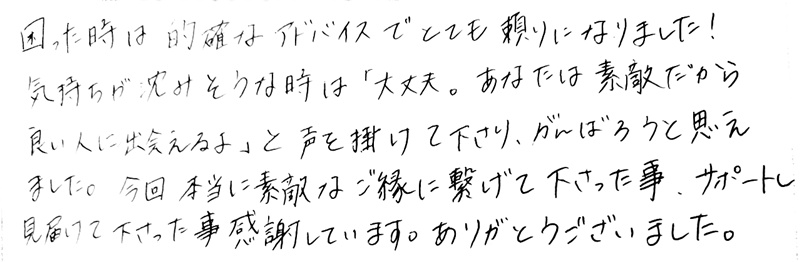 困った時は 的確な アドバイスで とても 頼りになりました!
気持ちが沈みそうな時は「大丈夫。あなたは素敵だから
良い人に出会えるよ」と声を掛けて下さり、がんばろうと思え
ました。今回 本当に素敵なご縁に繋げて下さった事、サポートし
見届けて下さった事感謝しています。ありがとうございました。